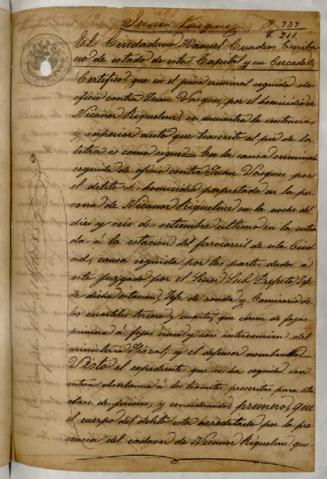 Juan Vasquez
737
211
El Ciudadano Manuel Cuadros Escriba
no de estado de esta Capital y su Cercado &
Certifico: que en el juicio criminal seguido de
oficio contra Juan Vasquez, por el homicidio de
Nicanor Riquelme, se encuentra la sentencia,
y superior auto que transcrito al pie de la
letra es como sigue. En la causa criminal
seguida de oficio contra Juan Vasquez por
el delito de homicidio perpetrado en la per
sona de Nicanor Riquelme en la noche del
diez y seis de setiembre ultimo en la entra
da á la estacion del ferrocarril de esta Ciu
dad, causa seguida por los partes dados á
este juzgado por el Señor Sub Prefecto, Jefe
de dicha estacion, Jefe de ronda y Comisario de
los cuarteles tercero y cuarto, que corren de fojas
primera á fojas cinco y con intervencion del
ministerio Fiscal, y el defensor nombrado
Visto el expediente que se ha seguido con
entera observancia á los trámites prescritos para esta
clase de juicios; y considerando primero: que
el cuerpo del delito está acreditado por la pre
sencia del cadaver de Nicanor Riquelme que